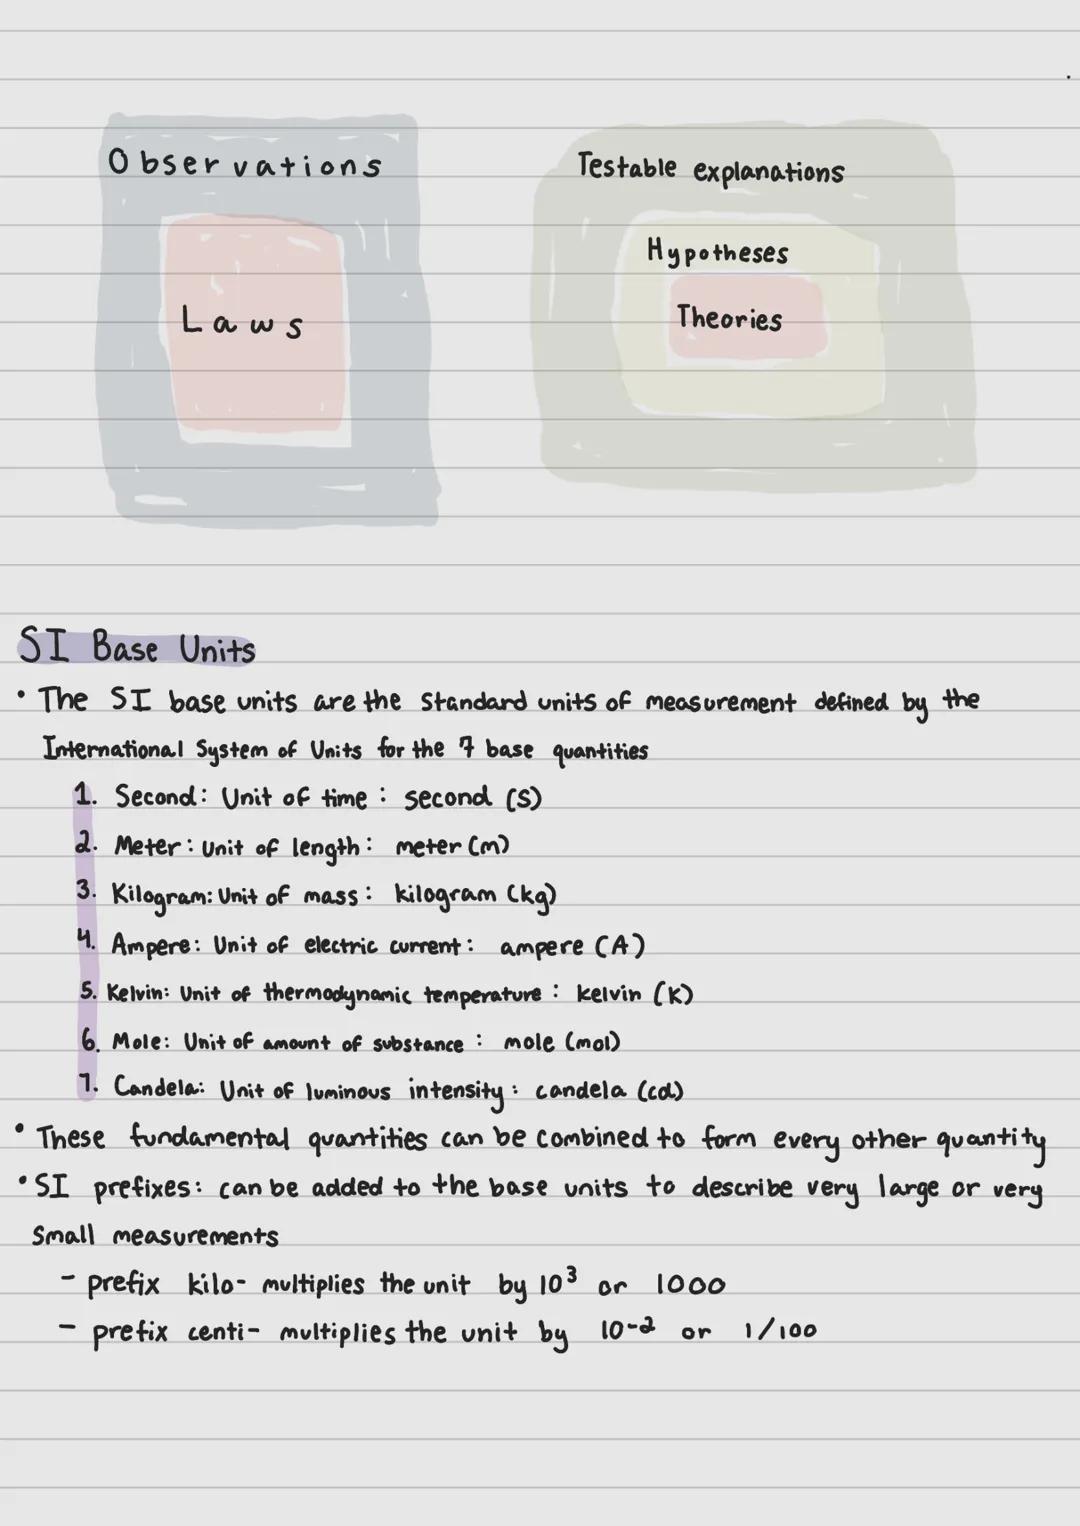 Observations
Laws
Testable explanations
Hypotheses
Theories
SI Base Units
• The SI base units are the standard units of measurement defined by the
International System of Units for the 7 base quantities
1. Second: Unit of time: second (s)
2. Meter: Unit of length: meter (m)
3. Kilogram: Unit of mass: kilogram (kg)
4. Ampere: Unit of electric current: ampere (A)
5. Kelvin: Unit of thermodynamic temperature: kelvin (K)
6. Mole: Unit of amount of substance: mole (mol)
7. Candela: Unit of luminous intensity: candela (cd)
• These fundamental quantities can be combined to form every other quantity
• SI prefixes: can be added to the base units to describe very large or very
small measurements
- prefix kilo- multiplies the unit by 10³ or 1000
- prefix centi- multiplies the unit by 10⁻² or 1/100